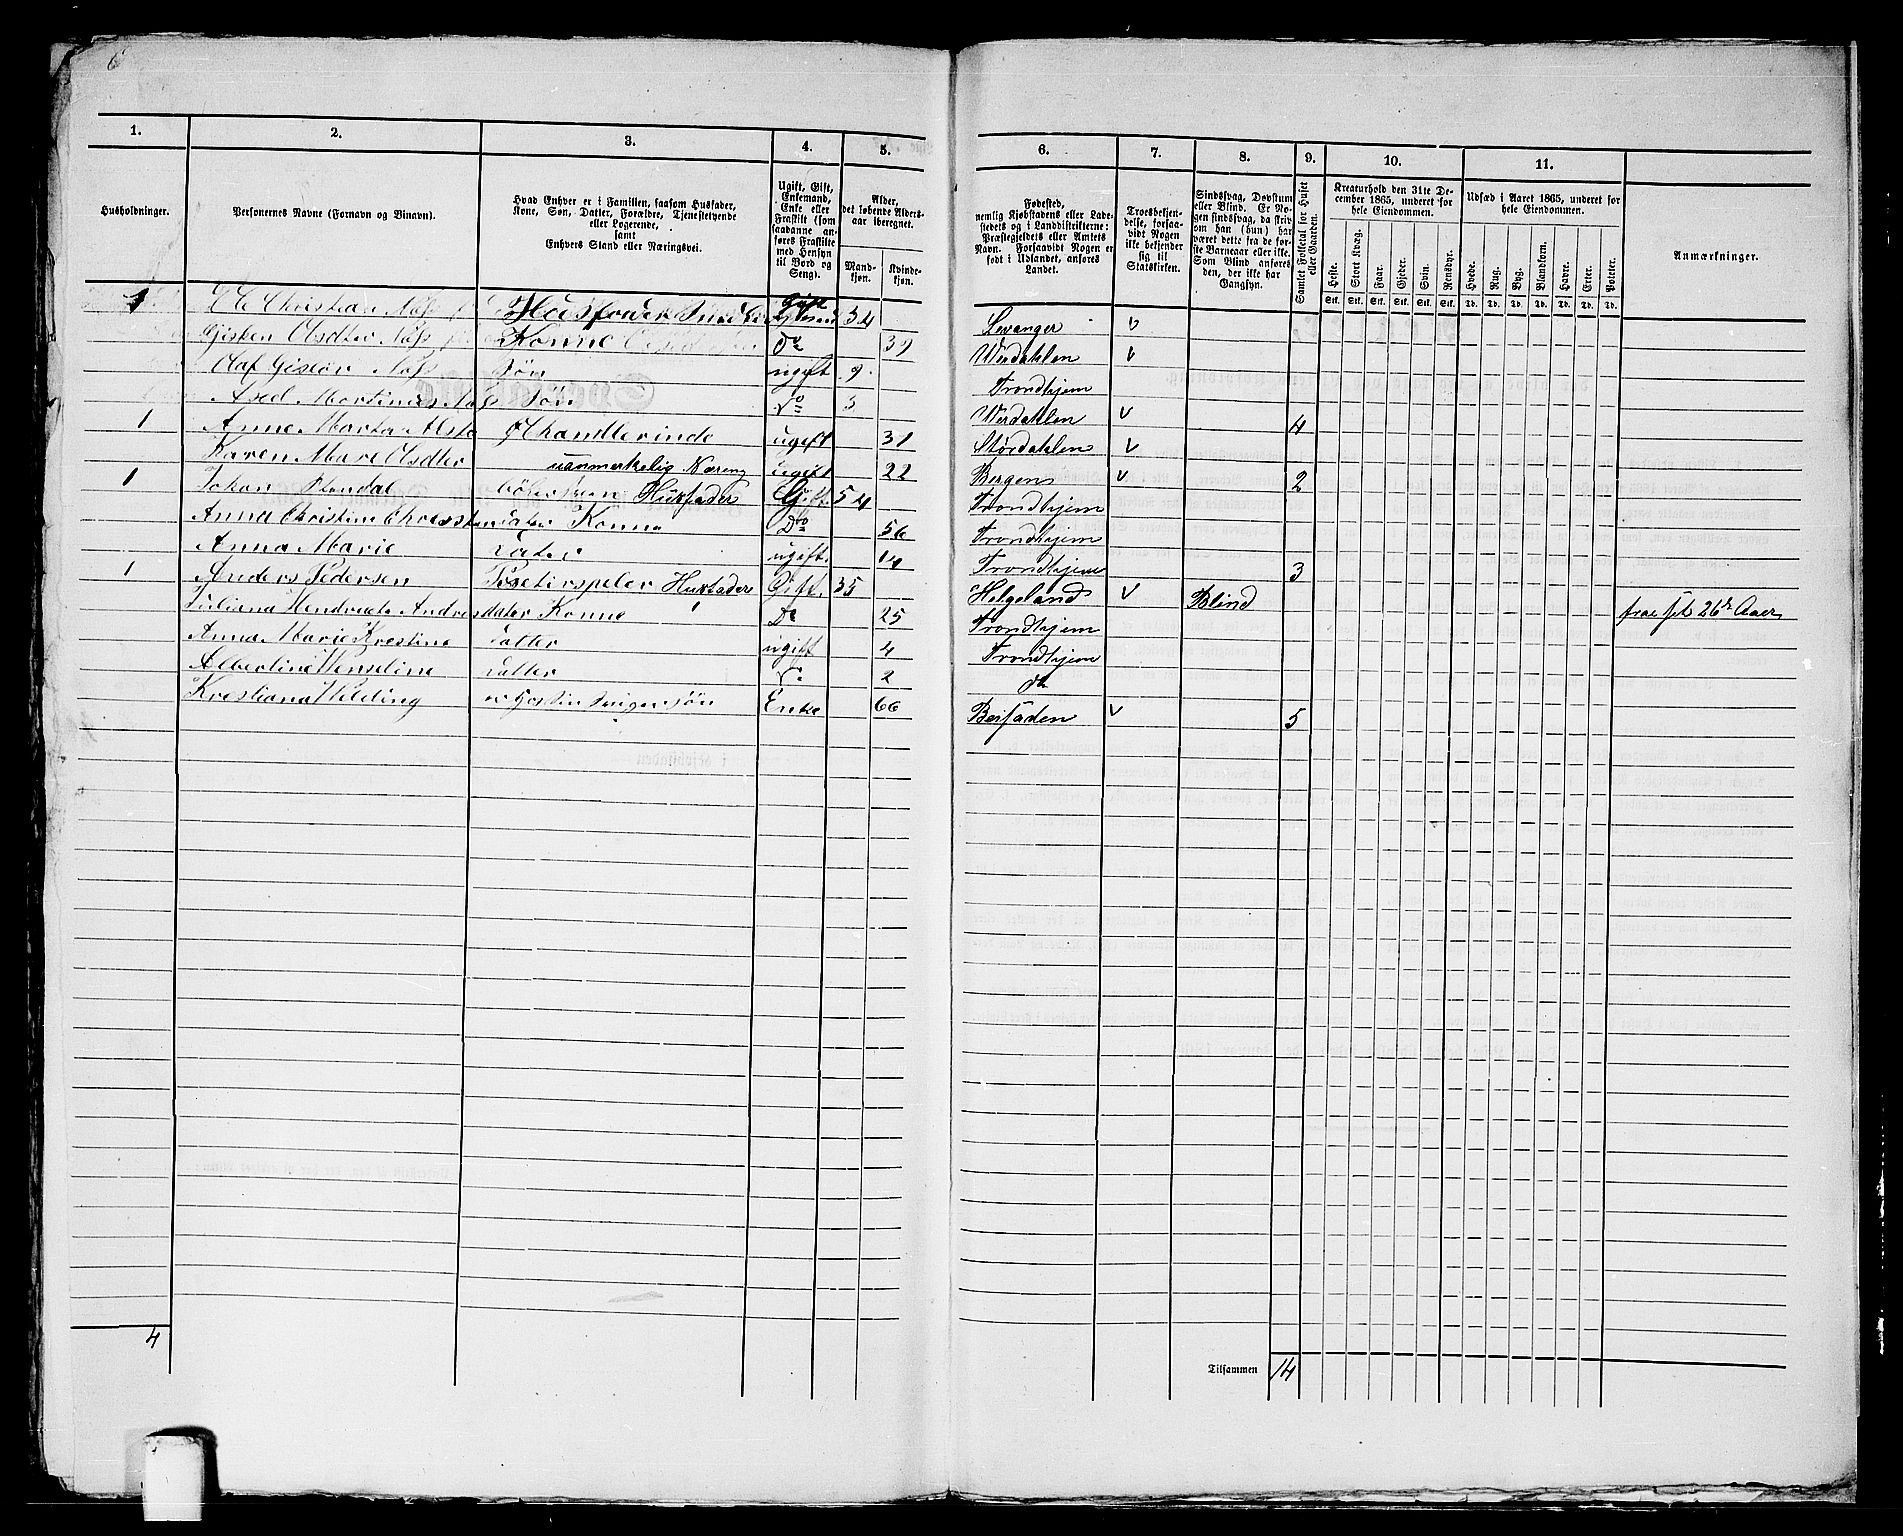 6
1. 2. 3. 4. 5. 6. 7. 8. 9. 10. 11.
Husholdninger.
Personernes Navne (Fornavn og Binavn).
Hvad Enhver er i Familien, saasom Husfader, Kone, Søn, Datter, Forældre, Tjenestetyende eller Logerende, samt Enhvers Stand eller Næringsvei.
Ugift, Gift, Enkemand, Enke eller Fraskilt (som saadanne anføres Fraskilte med Hensyn til Bord og Seng).
Alder, det løbende Alders-aar iberegnet.
Mand-kjøn.
Kvinde-kjøn.
Fødested, nemlig Kjøbstadens eller Ladestedets og i Landdistrikterne: Præstegjeldets eller Amtets Navn. Forsaavidt Nogen er født i Udlandet, anføres Landet.
Troesbekjendelse, forsaavidt Nogen ikke bekjender sig til Statskirken.
Sindssvag, Døvstum eller Blind. Er Nogen sindssvag, da skrives om han (hun) har været dette fra de første Barneaar eller ikke. Som Blind anføres den, der ikke har Gangsyn.
Samlet Folketal for Huset eller Gaarden.
Kreaturhold den 31te December 1865, underet for hele Eiendommen.
Heste. Stort Kvæg. Faar. Gjeder. Svin. Rensdyr.
Udsæd i Aaret 1865, underet for hele Eiendommen.
Hvede. Rug. Byg. Blandkorn. Havre. Erter. Poteter.
Anmærkninger.
Stk. Stk. Stk. Stk. Stk. Stk. Td. Td. Td. Td. Td. Td. Td.
1 Christian Næss Huusfader Gift 34 Levanger v
Gjsken Olsdter Næss Konne Do 39 Werdahlen v
Olaf Gisløv Næss Søn ugift 9 Trondhjem
Axel Martinus Næss Søn Do 3 Werdahlen v 4
1 Anne Marta Alsta Handlerinde ugift 31 Størdahlen v
Karen Marie Olsdter uanmerkelig Næring ugift 22 Bergens v 2
1 Johan Husfader Gift 54 Trondhjem
Anna Christine Chresstendater Konne Do 56 Trondhjem
Anna Marie Datter ugift 14 Trondhjem 3
1 Anders Pedersen Posetivspeler Husfader Gift 35 Helgeland v Blind fra sit 26de Aaer
Juliana Hendrette Andresdater Konne Do 25 Trondhjem
Anna Marie Krestine Datter ugift 4 Trondhjem
Albertine Henseline Datter Do 2 do
Krestiana Welding Enke 66 Beistaden v 5
4
Tilsammen 14